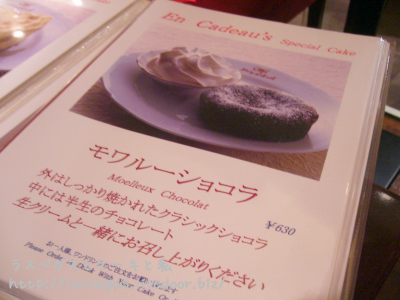 En Cadeau's Special Cake
モワルーショコラ
Moelleux Chocolat
¥630
外はしっかり焼かれたクラシックショコラ
中には半生のチョコレート
生クリームと一緒にお召し上がりください
お一人様、ワンドリンクのご注文をお願い
Please Order a Drink With Your Cake